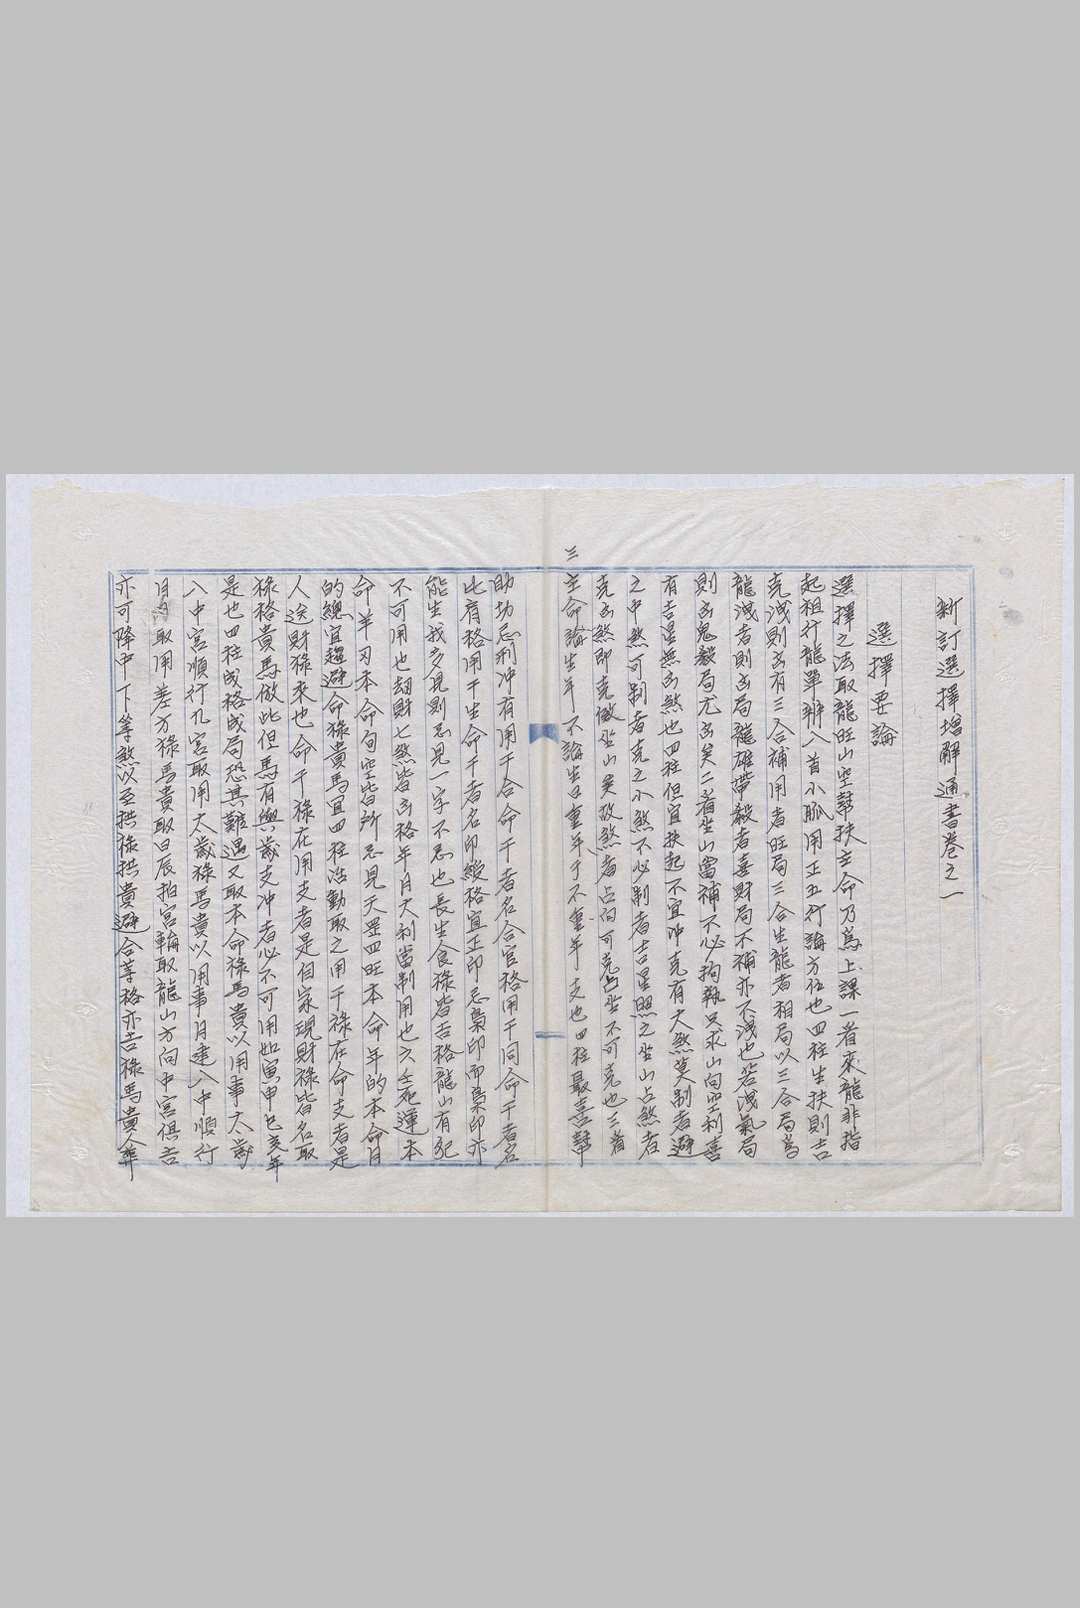 新訂選擇增解通書卷之一
選擇要論
選擇之法取龍旺山空幫扶主命乃為上課一者來龍非指
起祖行龍單辨入首小脈用正五行論方位也四柱生扶則吉
克洩則凶有三合補用者旺局三合生龍者相局以三合局為
龍洩者則凶局龍雄帶殺者喜財局不補亦不洩也若洩氣局
則凶鬼殺局尤凶矣二者坐山當補不必拘執只求山向空利喜
有吉星無凶煞也四柱但宜扶起不宜冲克有大煞莫剔者避
之中煞可制者克之小煞不必制者吉星照之坐山占煞者
克凶煞即克儆坐山矣故煞者占向可克占坐不可克也三者
三主命論生年不論生日重年干不重年支也四柱最喜幫
助切忌刑冲有用干合命干者名合官格用干同命干者名
比肩格用干生命干者名印綬格宜正印忌梟印而梟印亦
能生我多見則忌見一字不忌也長生食祿皆吉格龍山有犯
不可用也刼財七煞皆凶格年月大利當制用也六壬死運本
命羊刃本命旬空皆所忌見天罡四旺本命年的本命月
的總宜趨避命祿貴馬宜四柱浩動取之用干祿在命支者是
人送財祿來也命干祿在用支者是自家現財祿皆名取
祿格貴馬倣此但馬有與歲支冲者必不可用如寅申巳亥年
是也四柱成格成局恐其難遇又取本命祿馬貴以用事太歲
入中宮順行九宮取用太歲祿馬貴以用事月建入中順行
月為取用差方祿馬貴取日辰拍宮輪取龍山方向中宮俱吉
亦可降中下等煞以至拱祿拱貴避合等格亦吉祿馬貴人奔